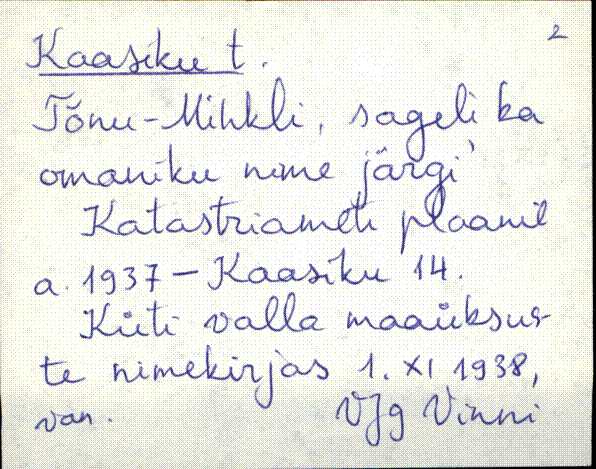 2
Kaasiku t.
Tõnu-Mihkli, sageli ka
omaniku nime järgi
Katastriameti plaanil
a. 1937 - Kaasiku 14.
Küti valla maaüksus-
te nimekirjas 1. XI 1938,
van. VJg Vinni